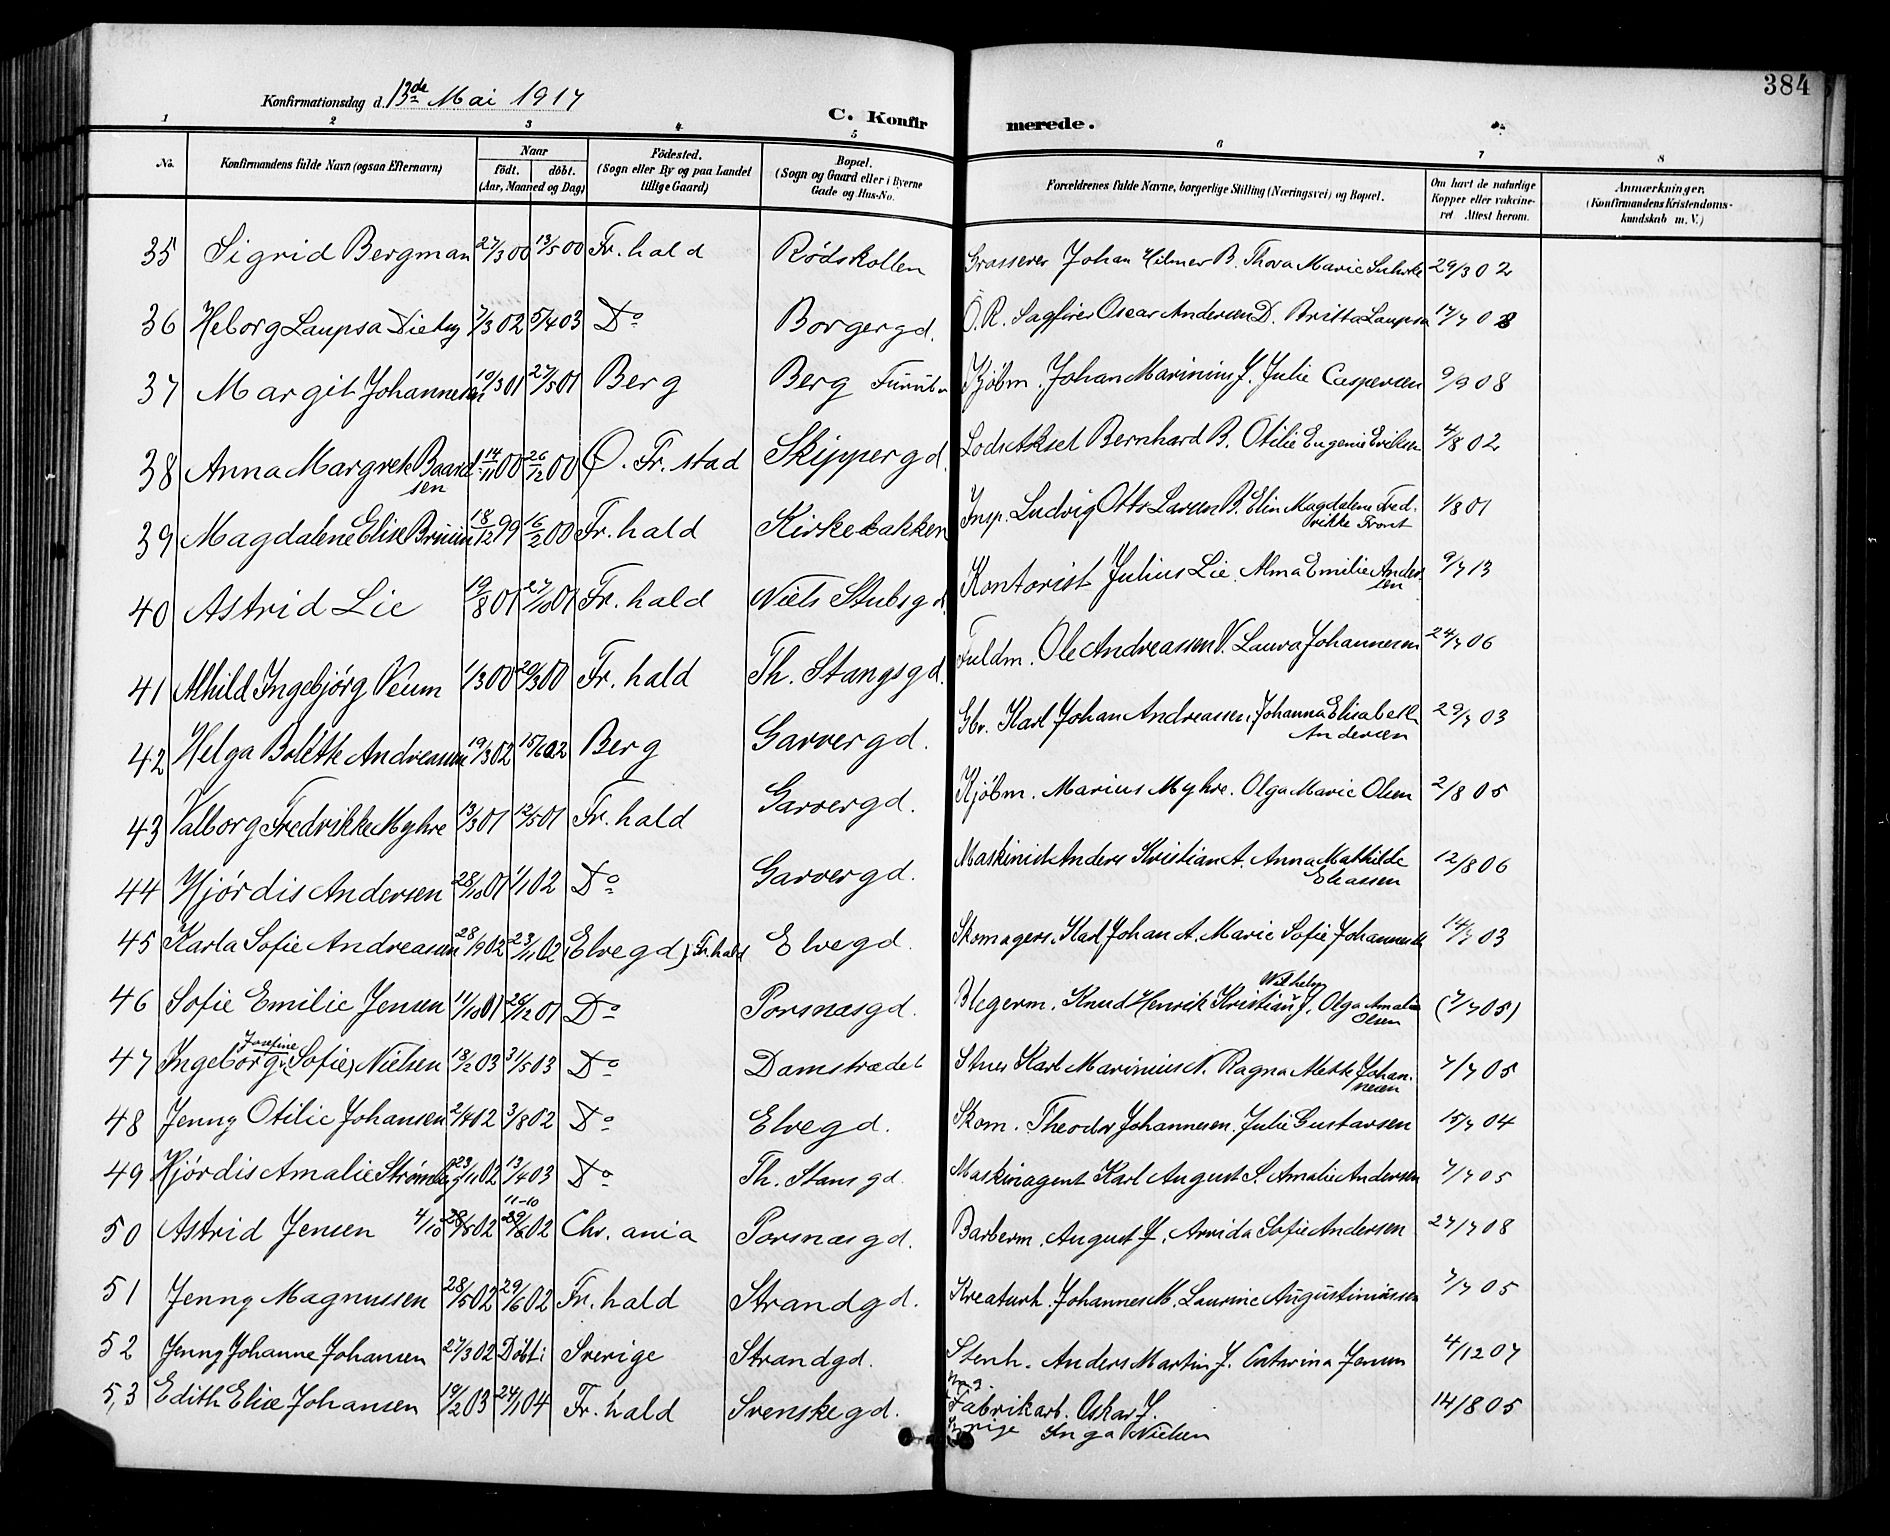 384
Konfirmationsdag d. 13de Mai 1917
C. Konfirmerede.
1 2 3 4 5 6 7 8
No. Konfirmandens fulde Navn (ogsaa Efternavn) Naar födt. döbt. (Aar, Maaned og Dag) Födested. (Sogn eller By og paa Landet tillige Gaard) Bopæl. (Sogn og Gaard eller i Byerne Gade og Hus-No. Forældrenes fulde Navne, borgerlige Stilling (Næringsvei) og Bopæl. Om havt de naturlige Kopper eller vakcineret Attest herom. Anmærkninger. (Konfirmandens Kristendomskundskab m. V.)
35 Sigrid Bergman 27/3 00 13/5 00 Fr.hald Rödskollen Grosserer Johan Hilmer B. Thora Marie 29/3 02
36 Heborg Laupsa 7/3 02 5/4 03 Do Borgergd. O.R. Sagfører Oscar Andersen D. Britta Laupsa 17/7 08
37 Margit Johannesen 10/3 01 27/5 01 Berg Berg Kjøbm. Johan Marinius J. Julie Caspersen 9/9 08
38 Anna Margrete Baardsen 14/11 00 26/12 00 Ø. Fr.stad Skippergd. Lods Aksel Bernhard B. Otilie Eugenie Eriksen 4/8 02
39 Magdalene Elise 18/12 99 16/2 00 Fr.hald Kirkebakken Insp. Ludvig Otto Larsen B. Elin Magdalene Fredrikke 1/8 01
40 Astrid Lie 19/8 01 27/10 01 Fr.hald Niels Stubsgd. Kontorist Julius Lie. Alma Emilie Andersen 9/7 13
41 Alhild Ingebjörg Veum 1/3 00 20/3 00 Fr.hald Th. Stangsgd. Fuldm. Ole Andreassen V. Laura Johannesen 24/7 06
42 Helga Bolette Andreassen 19/3 02 15/6 02 Berg Garvergd. Gbr. Karl Johan Andreassen, Johanna Elisabeth Andersen 29/7 03
43 Valborg Fredrikke Myhre 13/3 01 12/5 01 Fr.hald Garvergd. Kjøbm. Marius Myhre. Olga Marie Olsen 2/8 05
44 Hjördis Andersen 28/10 01 1/1 02 Do Garvergd. Maskinist Anders Kristian A. Anna Mathilde Eliassen 12/8 06
45 Karla Sofie Andreassen 28/9 02 23/11 02 (Elvegd) Fr.hald Elvegd. Skomagers. Karl Johan A. Marie Sofie Johannesen 14/7 03
46 Sofie Emilie Jensen 11/10 01 26/12 01 Do Porsnæsgd. Blegerm. Knud Henrik Kristian Wilhelm J. Olga Amalie Olsen (7/7 05)
47 Ingeborg Josefine (Sofie) Nielsen 18/2 03 31/5 03 Do Damstrædet Stuer Karl Marinius N. Ragna Mette Johannesen 7/7 05
48 Jenny Otilie Johansen 2/4 02 3/8 02 Do Elvegd. Skom. Theodor Johannesen. Julie Gustavsen 15/7 04
49 Hjördis Amalie Strömberg 23/11 02 13/4 03 Do Th. Stansgd. Maskinagent Karl August S. Amalie Andersen 7/7 05
50 Astrid Jensen 4/10 02 11-10 02 Chr.ania Porsnæsgd. Barberm. August J. Arvida Sofie Andersen 27/7 08
51 Jenny Magnussen 28/5 02 29/6 02 Fr.hald Strandgd. Kreaturh. Johannes M. Laurine Augustiniussen 7/7 05
52 Jenny Johanne Johansen 27/3 02 Döbt i Sverige Strandgd. Stenh. Anders Martin J. Catarina Jensen 4/12 07
53 Edith Elise Johansen 19/2 03 24/1 04 Fr.hald Svenskegd. Fabrikarb. Oskar J. Inga Nielsen 14/8 05